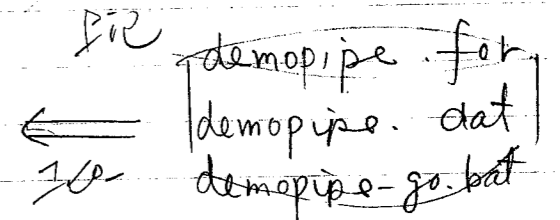 demopipe.for
demopipe.dat
demopipe-go.bat